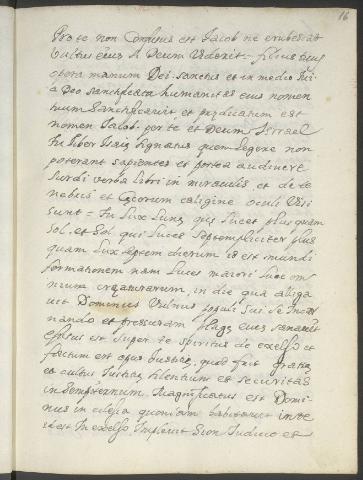 16
Pro te non Confusus est Jacob ne erubescat
Vultus eius si Deum Viderit = filius tuus
opera manum Dei. sanctus et in medio tui
a Deo sanctificata humanitas eius nomen
tuum Sanctificavit et predicatum est
nomen Jacob. per te et Deum Jsrrael
Tu liber Isaiæ signatus quem legere non
poterant sapientes et postea audivere
surdi verba libri in miraculis, et de te
nebris et Cæcorum caligine oculi Visi
sunt = Tu Lux Lunæ quæ lucet plus quam
sol. et Sol qui lucet septempliciter plus
quam Lux septem dierum id est mundi
formationem nam Luces maiori Luce om
nium creaturarum in die qua alliga
uit Dominus Vulnus populi sui. se Incar
nando et pressuram plagæ eius sanauit
effusus est super te spiritus de excelso et
factum est opus Iustitiæ, quod fuit gratia
et cultus Iustitiæ silentium et securitas
in sempiternum. Magnificatus est Domi
nus in celesia quoniam habitauit in te
id est In excelso. Impleuit Sion Iudicio et